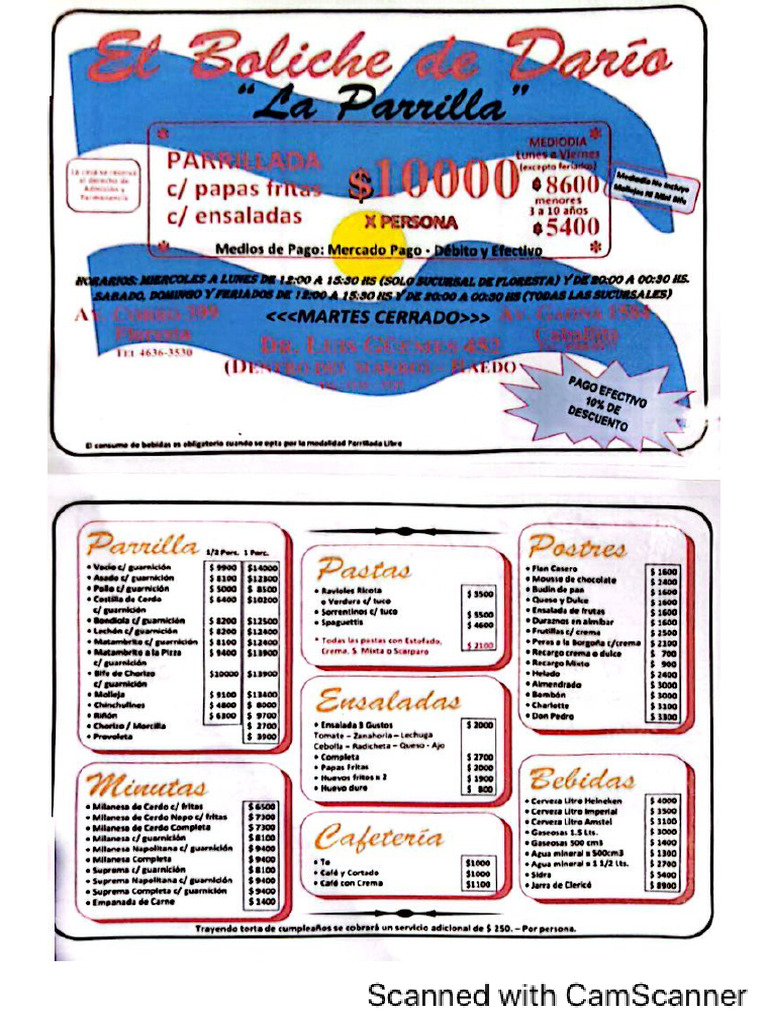 El Boliche de Darío
"La Parrilla"
PARRILLADA
c/ papas fritas
c/ ensaladas
$10000
X PERSONA
MEDIODIA
Lunes a Viernes
(excepto feriados)
$8600
menores
3 a 10 años
$5400
La casa se reserva
el derecho de
Admisión y
Permanencia
Mediodia No Incluye
Mollejas Ni Mini Bife
Medios de Pago: Mercado Pago - Débito y Efectivo
HORARIOS: MIERCOLES A LUNES DE 12:00 A 15:30 HS (SOLO SUCURSAL DE FLORESTA) Y DE 20:00 A 00:30 HS.
SABADO, DOMINGO Y FERIADOS DE 12:00 A 15:30 HS Y DE 20:00 A 00:30 HS (TODAS LAS SUCURSALES)
<<<MARTES CERRADO>>>
Floresta
Tel 4636-3530
Av. Gaona 1584
Caballito
Dr. Luis Güemes 452
PAGO EFECTIVO
10% DE
DESCUENTO
El consumo de bebidas es obligatorio cuando se opta por la modalidad Parrillada Libre
Parrilla 1/2 Porc. 1 Porc.
• Vacio c/ guarnición $ 9900 $14000
• Asado c/ guarnición $ 8100 $12300
• Pollo c/ guarnición $ 5000 $ 8500
• Costilla de Cerdo
c/ guarnición $ 6400 $10200
• Bondiola c/ guarnición $ 8200 $12500
• Lechón c/ guarnición $ 8200 $12400
• Matambrito c/ guarnición $ 8100 $12400
• Matambrito a la Pizza
c/ guarnición $ 9400 $13900
• Bife de Chorizo
c/ guarnición $10000 $13900
• Molleja $ 9100 $13400
• Chinchulines $ 4800 $ 8000
• Riñón $ 6300 $ 9700
• Chorizo / Morcilla $ 2700
• Provoleta $ 3900
Minutas
• Milanesa de Cerdo c/ fritas $ 6500
• Milanesa de Cerdo Napo c/ fritas $ 7300
• Milanesa de Cerdo Completa $ 7300
• Milanesa c/ guarnición $ 8100
• Milanesa Napolitana c/ guarnición $ 9400
• Milanesa Completa $ 9400
• Suprema c/ guarnición $ 8100
• Suprema Napolitana c/ guarnición $ 9400
• Suprema Completa c/ guarnición $ 9400
• Empanada de Carne $ 1400
Pastas
• Ravioles Ricota
o Verdura c/ tuco $ 5500
• Sorrentinos c/ tuco $ 5500
• Spaguettis $ 4600
* Todas las pastas con Estofado,
Crema, S. Mixta o Scarparo $ 2100
Ensaladas
• Ensalada 3 Gustos $ 2000
Tomate – Zanahoria – Lechuga
Cebolla – Radicheta – Queso - Ajo
• Completa $ 2700
• Papas Fritas $ 2000
• Huevos fritos x 2 $ 1900
• Huevo duro $ 800
Cafetería
• Te $1000
• Café y Cortado $1000
• Café con Crema $1100
Postres
• Flan Casero $ 1600
• Mousse de chocolate $ 2400
• Budin de pan $ 1600
• Queso y Dulce $ 1600
• Ensalada de frutas $ 1600
• Duraznos en almibar $ 1600
• Frutillas c/ crema $ 2500
• Peras a la Borgoña c/crema $ 2100
• Recargo crema o dulce $ 700
• Recargo Mixto $ 900
• Helado $ 2400
• Almendrado $ 3000
• Bombón $ 3000
• Charlotte $ 3100
• Don Pedro $ 3300
Bebidas
• Cerveza Litro Heineken $ 4000
• Cerveza Litro Imperial $ 3500
• Cerveza Litro Amstel $ 3100
• Gaseosas 1.5 Lts. $ 3000
• Gaseosas 500 cm3 $ 1400
• Agua mineral x 500cm3 $ 1300
• Agua mineral x 1 1/2 Lts. $ 2700
• Sidra $ 5400
• Jarra de Clericó $ 8900
Trayendo torta de cumpleaños se cobrará un servicio adicional de $ 250. – Por persona.
Scanned with CamScanner